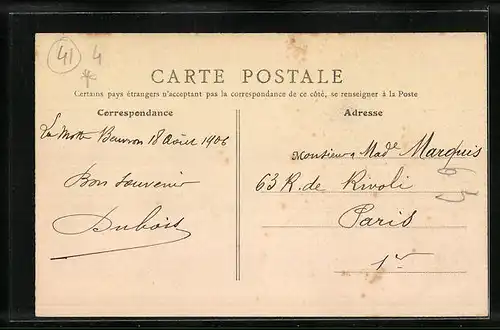 41 4
CARTE POSTALE
Certains pays étrangers n'acceptant pas la correspondance de ce côté, se renseigner à la Poste
Correspondance
Adresse
La Motte Beuvron 18 Août 1906
Bon souvenir
Dubois
Monsieur & Made Marquis
63 R. de Rivoli
Paris
1er